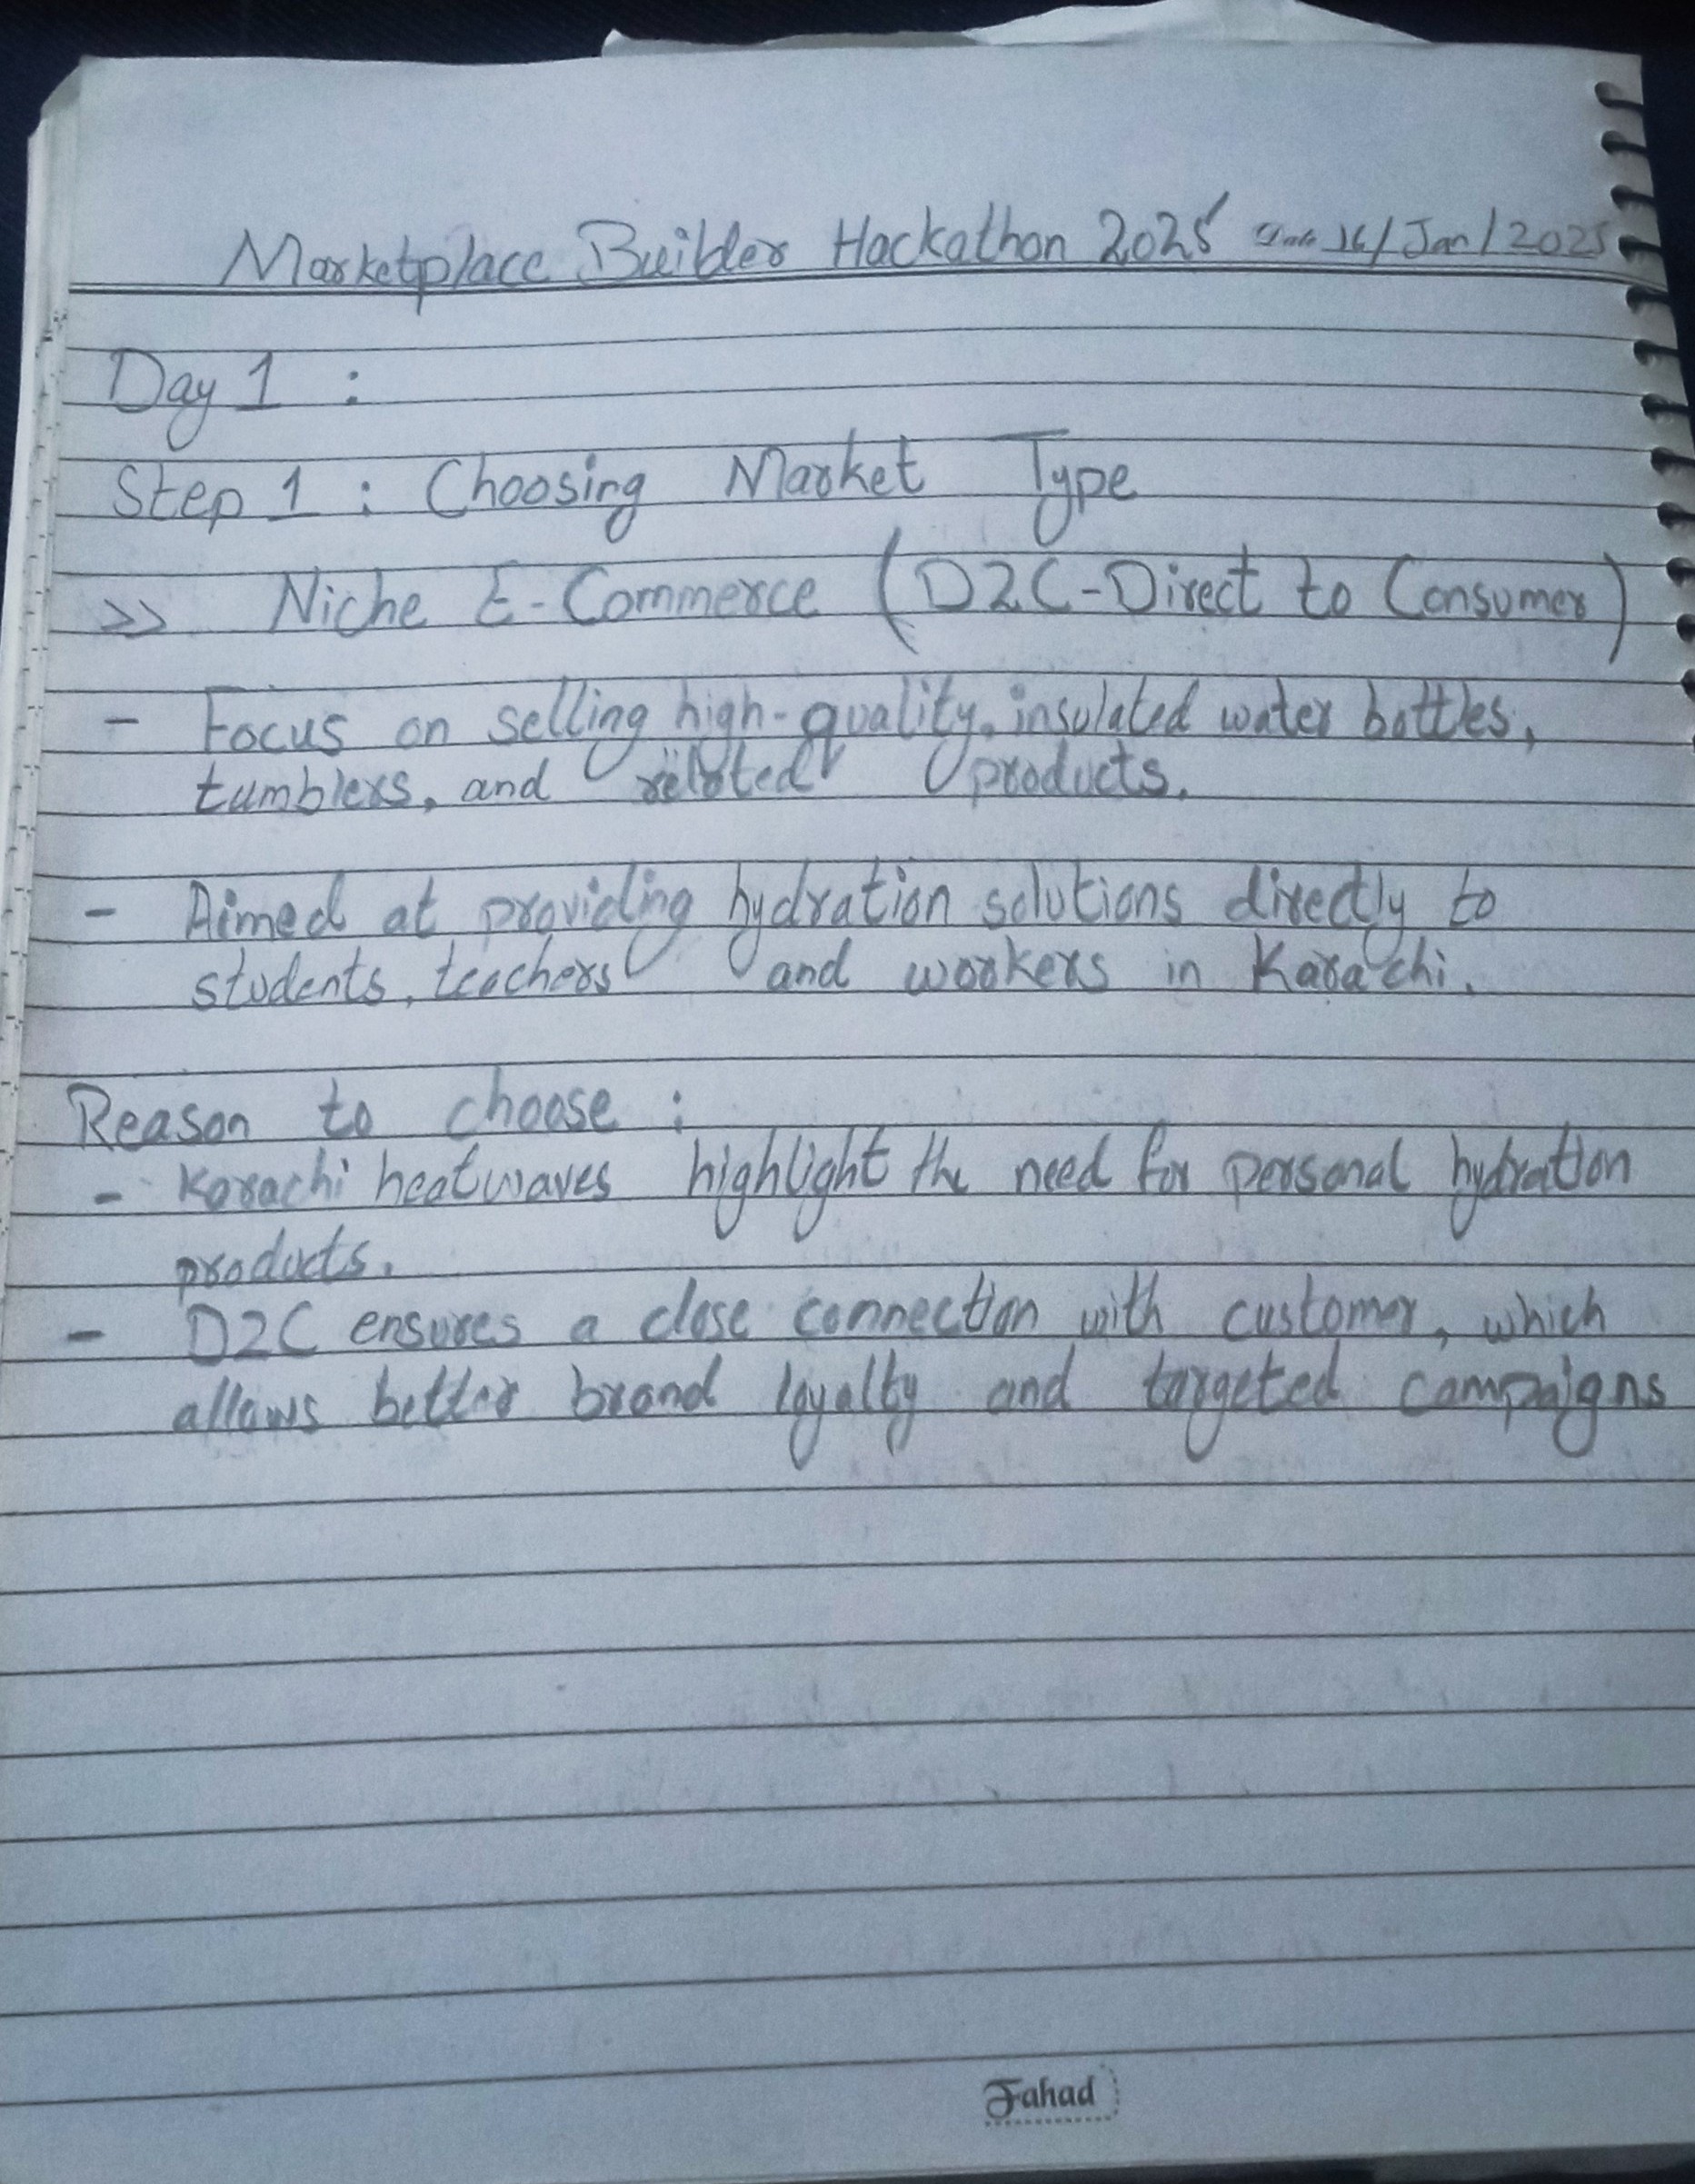 Marketplace Builder Hackathon 2025 Date 16/Jan/2025
Day 1 :
Step 1 : Choosing Market Type
>> Niche E-Commerce (D2C-Direct to Consumer)
- Focus on selling high-quality, insulated water bottles,
tumblers, and related products.
- Aimed at providing hydration solutions directly to
students, teachers and workers in Karachi.
Reason to choose :
- Karachi heatwaves highlight the need for personal hydration
products.
- D2C ensures a close connection with customer, which
allows better brand loyalty and targeted campaigns
Fahad